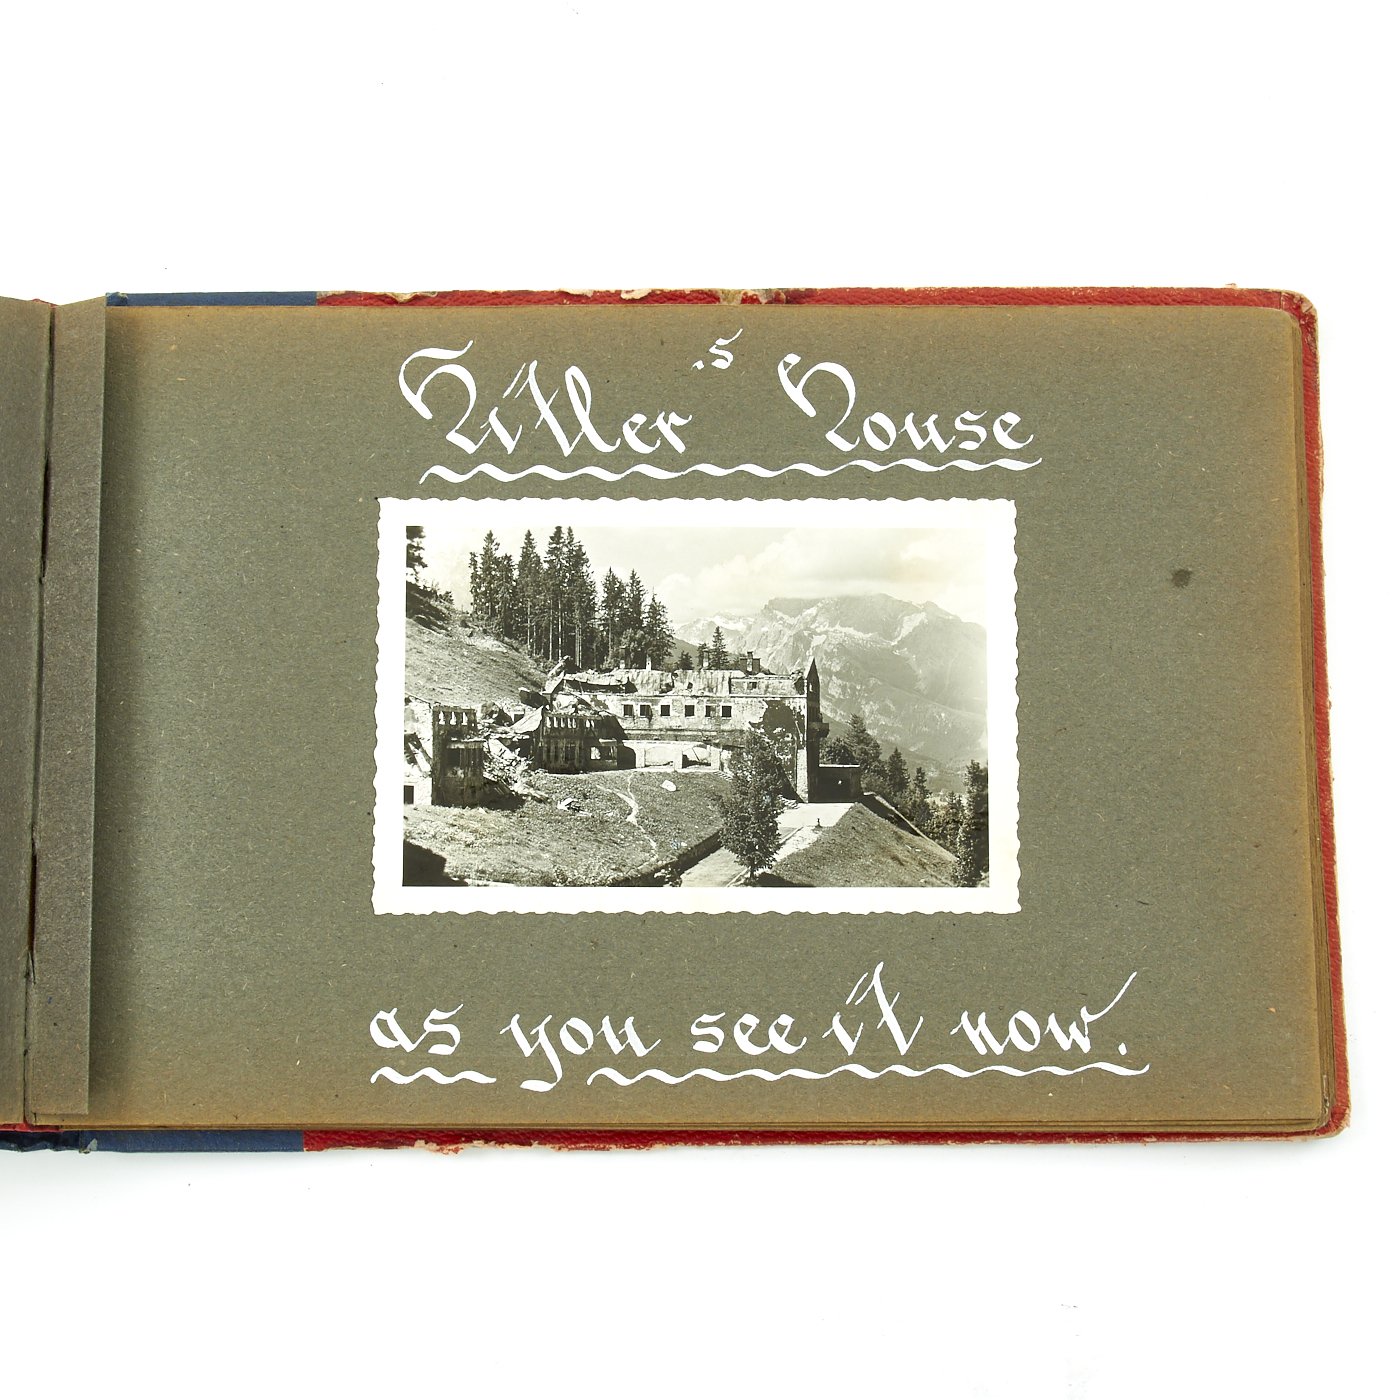 Hitler's House
as you see it now.